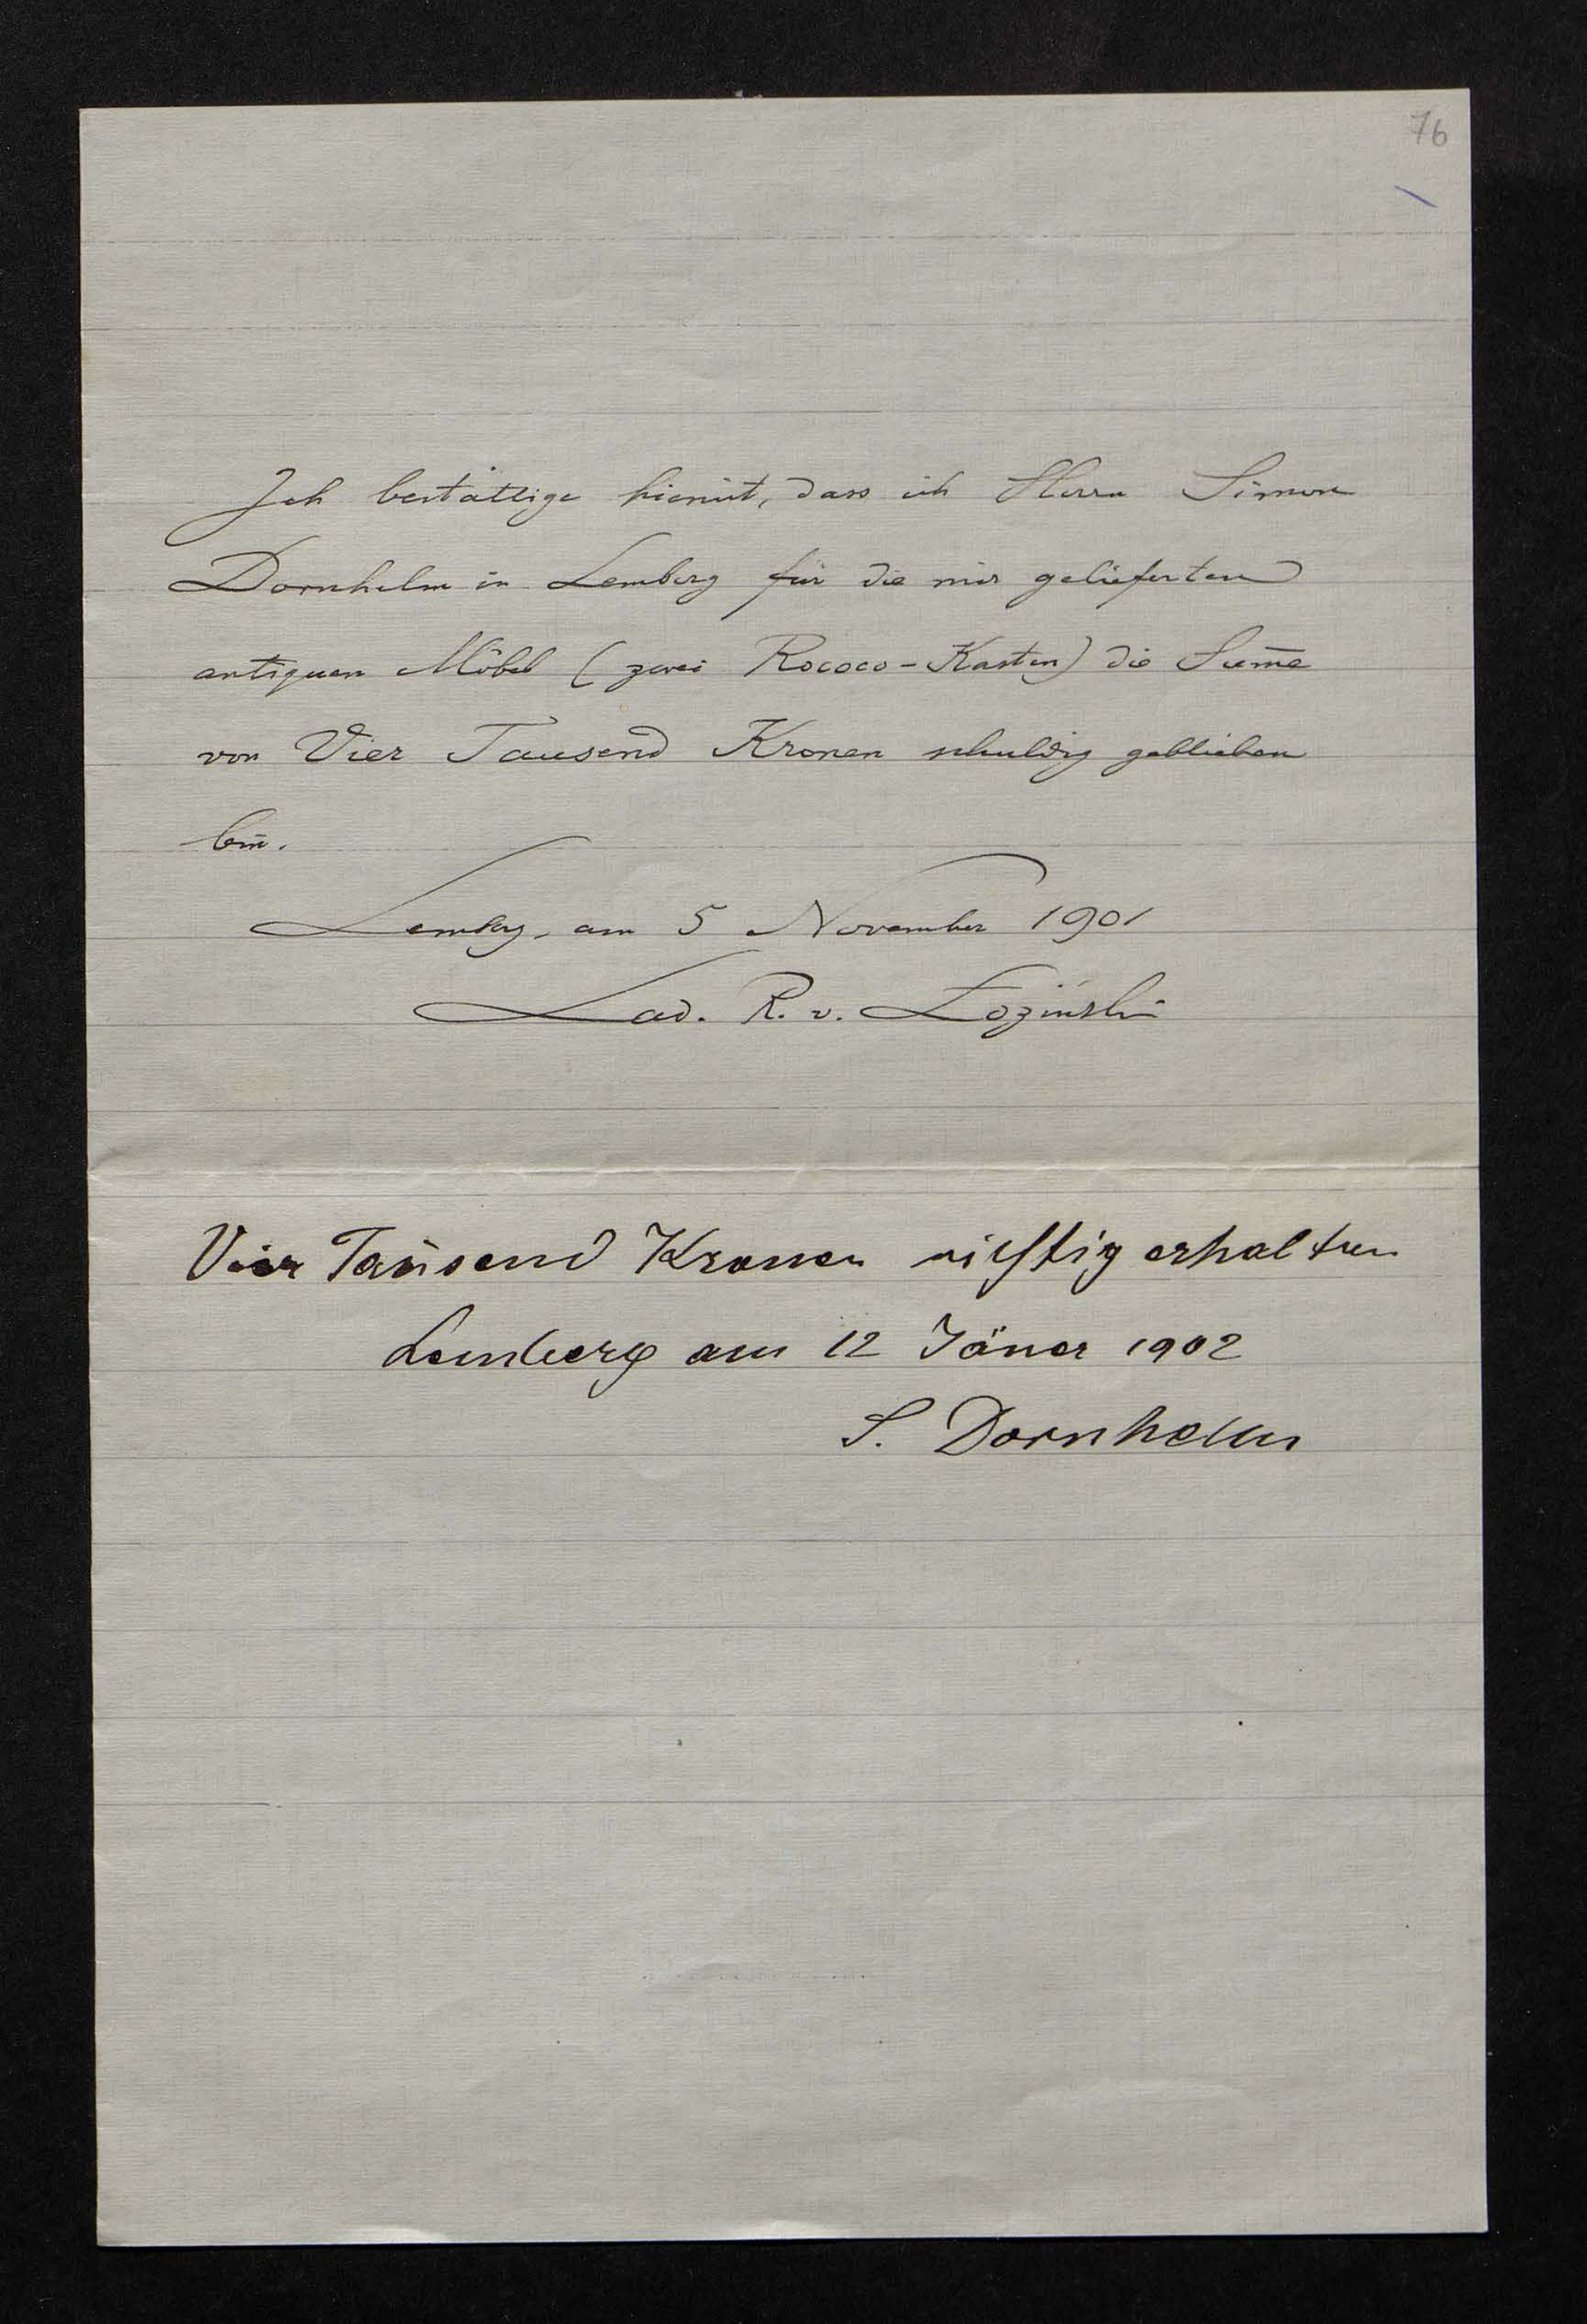 76
Ich bestättige hiemit, dass ich Herrn Simon
Dornhelm in Lemberg für die mir gelieferten
antiquen Möbel (zwei Rococo-Kasten) die Sum̄e
von Vier Tausend Kronen schuldig geblieben
bin.
Lemberg, am 5 November 1901
Lad. R. v. Łoziński
Vier Taŭsend Kronen richtig erhalten
Lemberg am 12 Jäner 1902
S. Dornhelm